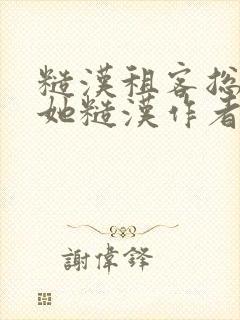 糙漢租客總
她糙漢作者
謝偉鋒